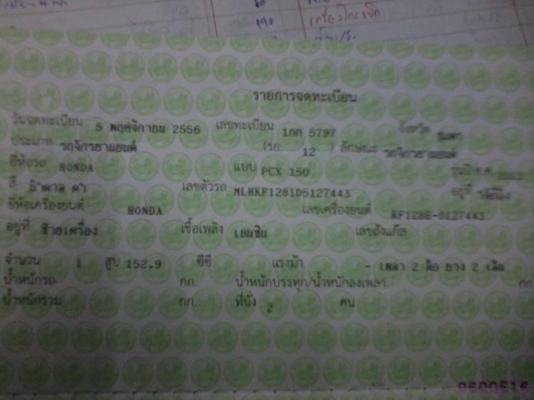 รายการจดทะเบียน
วันจดทะเบียน 5 พฤศจิกายน 2556 เลขทะเบียน 1กก 5797 จังหวัด
ประเภท รถจักรยานยนต์ (รย. 12 ) ลักษณะ รถจักรยานยนต์
ยี่ห้อรถ HONDA แบบ PCX 150
สี น้ำตาล ดำ เลขตัวรถ MLHKF1281D5127443 อยู่ที่
ยี่ห้อเครื่องยนต์ HONDA เลขเครื่องยนต์ KF12BE-0127443
อยู่ที่ ซ้ายเครื่อง เชื้อเพลิง เบนซิน เลขถังแก๊ส
จำนวน 1 สูบ 152.9 ซีซี แรงม้า - เพลา 2 ล้อ ยาง 2 เส้น
น้ำหนักรถ กก. น้ำหนักบรรทุก/น้ำหนักลงเพลา กก.
น้ำหนักรวม กก. ที่นั่ง 2 คน